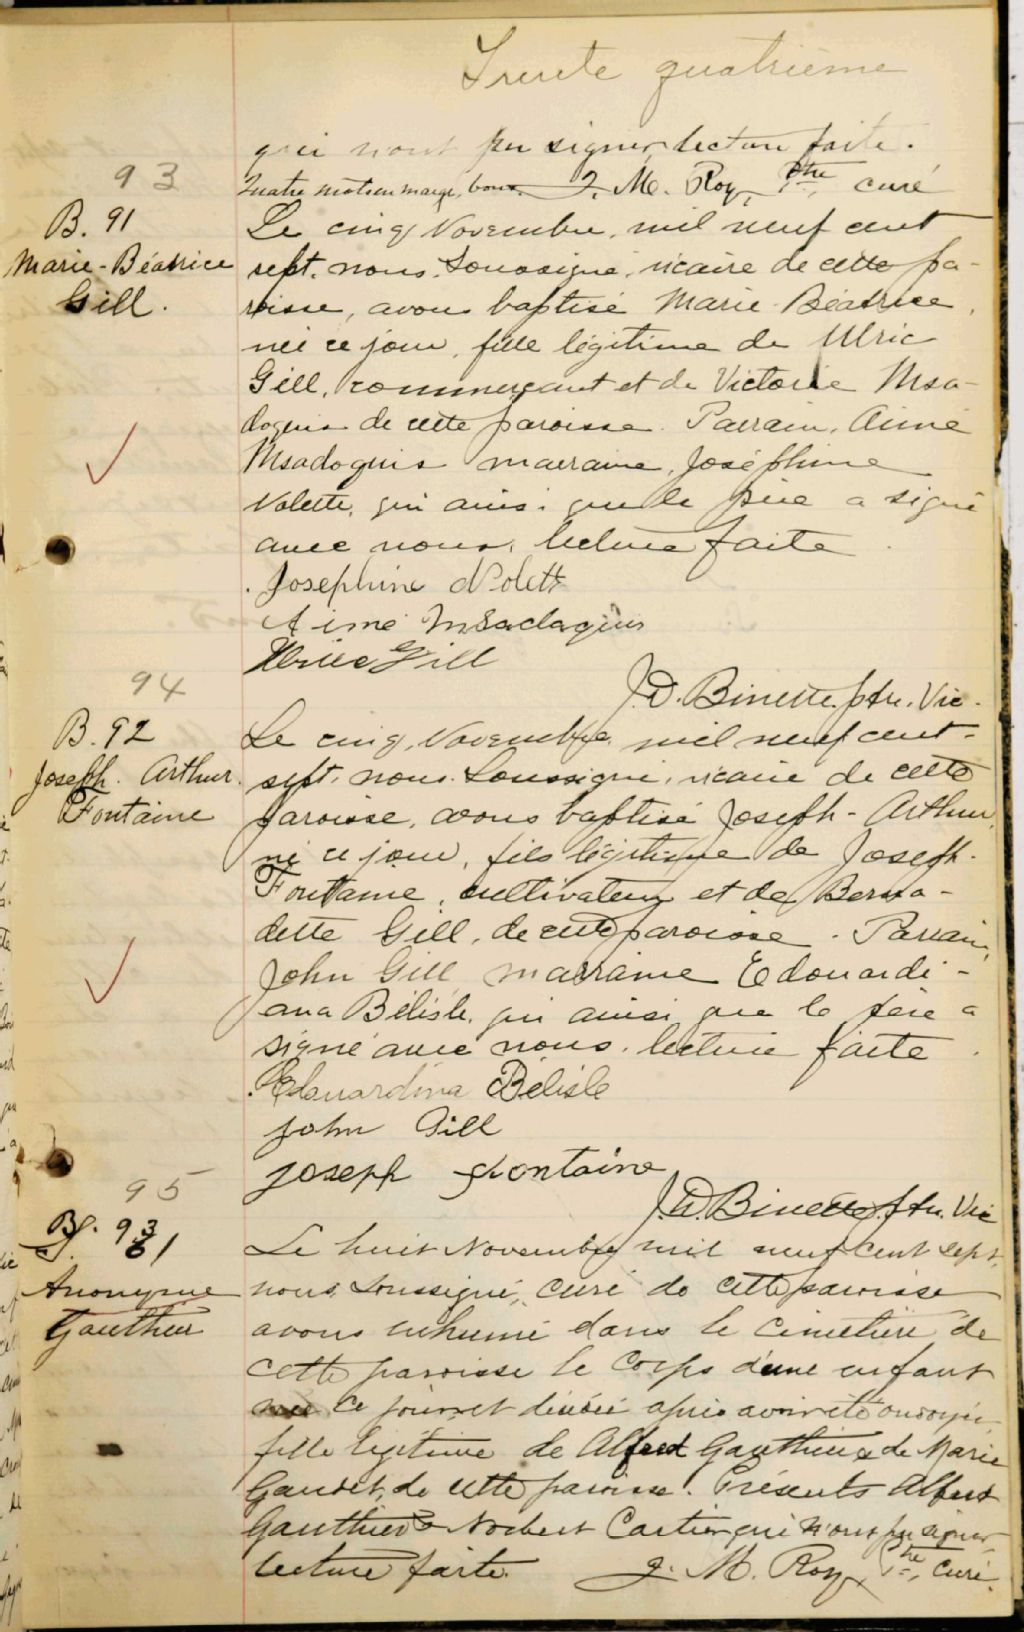 Trente quatrième
qui n'ont pu signer, lecture faite.
Quatre mots en marge, bons. J. M. Roy, Ptre, curé
93
B. 91
Marie-Béatrice
Gill.
Le cinq Novembre, mil neuf cent
sept, nous, soussigné, vicaire de cette pa-
roisse, avons baptisé Marie Béatrice,
née ce jour, fille légitime de Ulric
Gill, commerçant et de Victoria Msa-
doquis de cette paroisse. Parrain, Aimé
Msadoquis marraine, Joséphine
Nolette, qui ainsi que le père a signé
avec nous, lecture faite.
Josephine Nolett
Aimé Msadaquis
Ulric Gill
J. D. Binette, ptr. Vic.
94
B. 92
Joseph. Arthur.
Fontaine
Le cinq, Novembre, mil neuf cent-
sept, nous Soussigné, vicaire de cette
paroisse, avons baptisé Joseph-Arthur,
né ce jour, fils légitime de Joseph-
Fontaine, cultivateur et de Berna-
dette Gill, de cette paroisse. Parrain,
John Gill marraine Edouardi-
ana Bélisle, qui ainsi que le père a
signé avec nous, lecture faite.
Edouardina Bélisle
John Gill
Joseph Fontaine
J. D. Binette, ptr. Vic
95
B. 93
S. 61
Anonyme
Gauthier
Le huit Novembre mil neuf cent sept,
nous, Soussigné, curé de cette paroisse
avons inhumé dans le cimetière de
cette paroisse le corps d'une enfant
née ce jour et décédée après avoir été ondoyée
fille légitime de Alfred Gauthier & de Marie
Gaudet, de cette paroisse. Présents Alfred
Gauthier & Norbert Cartier qui n'ont pu signer,
lecture faite. J. M. Roy, Ptre, curé.